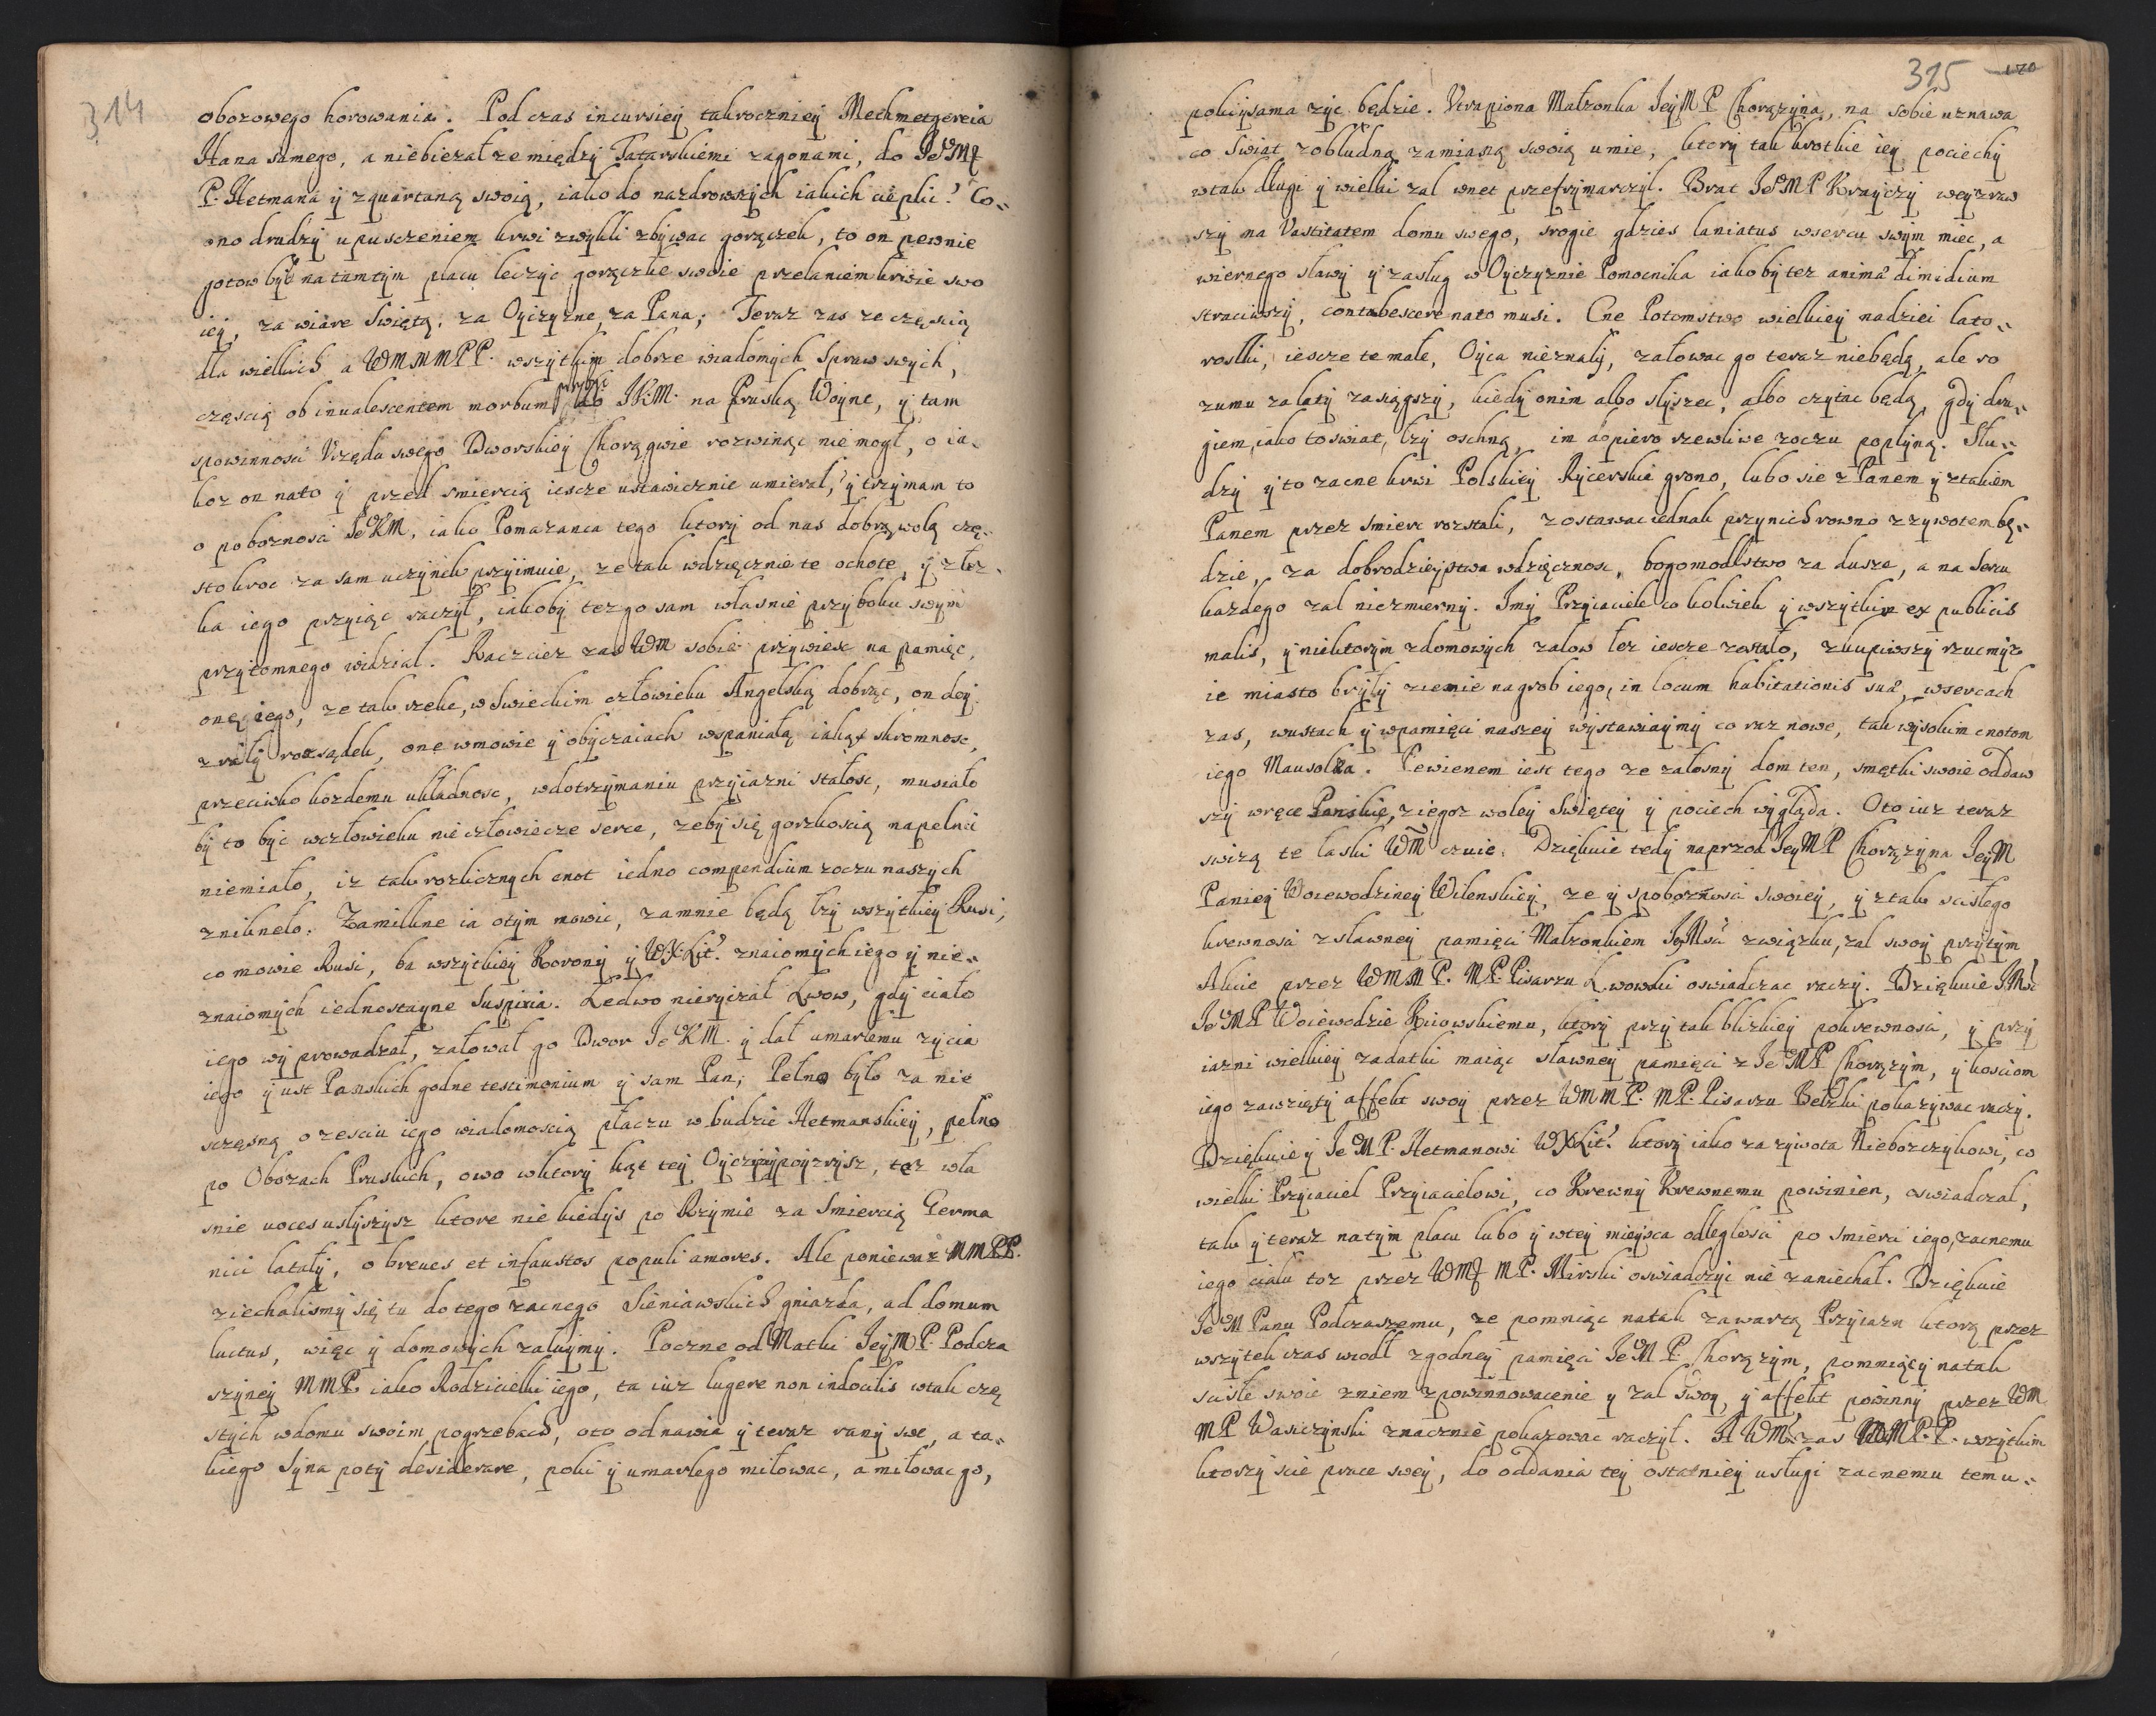 314
obozowego horowania. Pod czas incursiey takroczniey Mechmetgereia
Hana samego, a niebiezał ze między Tatarskiemi zagonami, do JeoMP
P. Hetmana ÿ zquartaną swoią, iako do nazdrowszych iakich cieplic? Co-
ono drudzÿ upusczeniem krwi zwÿkli zbÿwac gorączek, to on pewnie
gotow bÿł natamtÿm placu leczÿc gorączke swoie przelaniem krwie swo
ieÿ, za wiare Swiętą, za Oÿczÿzne, za Pana; Teraz zas ze częscią
dla wielkich a WMMMPP. wszÿtkim dobrze wiadomÿch Spraw swÿch,
częscią ob inualescentem morbum przÿ JKM. na Pruską Woÿne, ÿ tam
spowinnosci Vrzędu swego Dworskieÿ Chorągwie rozwinąc nie mogł, o ia-
koz on nato ÿ przed smiercią iescze ustawicznie umierał, ÿ trzÿmam to
o poboznosci JeKM, iako Pomazanca tego ktorÿ od nas dobrą wolą czę-
stokroc za sam uczÿnek przÿimuie, ze tak wdzięcznie te ochote ÿ złoz-
ka iego przÿiąc raczÿł, iakobÿ tez go sam własnie przÿ boku swÿm
przÿtomnego widział. Raczciez zas WM sobie przÿwiesc na pamięc,
onę iego, ze tak rzeke, w Swieckim człowieku Angelską dobrąc, on doÿ
zrałÿ rozsądek, onę wmowie ÿ obÿczaiach wspaniałą iakąs skromnosc,
przeciwko kozdemu układnosc, wdotrzÿmaniu przÿiazni stałosc, musiało
bÿ to bÿc wczłowieku nie człowiecze serce, zebÿ się gorzkoscią napełnic
niemiało, iz tak rozlicznych cnot iedno compendium zoczu naszÿch
znikneło. Zamilkne ia otÿm mowic, zamnie będą łzÿ wszÿtkieÿ Rusi,
co mowie Rusi, ba wszÿtkieÿ Koronÿ ÿ WXLitt. znaiomÿch iego ÿ nie-
znaiomÿch iednostaÿne Suspiria. Ledwo nieryczał Lwow, gdÿ ciało
iego wÿprowadzał, załował go Dwor JeKM. ÿ dał umarłemu zÿcia
iego ÿ ust Panskich godne testimonium ÿ sam Pan; Pełno było za nie
sczęsną o zesciu iego wiadomoscią płaczu w budzie Hetmanskieÿ, pełno
po Obozach Pruskich, owo wktorÿ kąt teÿ Oÿczÿznÿ poÿzrÿsz, toz wła
snie uoces usłÿszÿsz ktore nie kiedÿs po Rzÿmie za Smiercią Germa
nici latałÿ, o breues et infaustos populi amores. Ale poniewaz MMPP.
ziechalismÿ się tu do tego zacnego Sieniawskich gniazda, ad domum
luctus, więc ÿ domowÿch załuÿmÿ. Poczne od Matki JeÿMP. Podcza
szÿneÿ MMP. iako Rodzicielki iego, ta iuz lugere non indocilis wtak czę
stÿch wdomu swoim pogrzebach, oto odnawia ÿ teraz ranÿ swe, a ta-
kiego Sÿna potÿ desiderare, poki ÿ umarłego miłowac, a miłowac go,
315 170
pokiÿ sama zÿc będzie. Vtrapiona Małzonka JeÿMP Chorązÿna, na sobie uznawa
co Swiat zobłudną zamianą swoią umie, ktorÿ tak krotkie ieÿ pociechÿ
wtak długi ÿ wielki zal wnet przefrÿmarczÿł. Brat JeoMP Kraÿczÿ weÿzraw
szÿ na Vastitatem domu swego, srogie gdzies laniatus wsercu swÿm miec, a
wiernego sławÿ ÿ zasług w Oÿczÿznie Pomocnika iakobÿ tez animæ dimidium
straciwszÿ, contabescere nato musi. Cne Potomstwo wielkieÿ nadziei lato-
roslki, iescze te małe, Oÿca nieznałÿ, załowac go teraz niebędą, ale ro
zumu za latÿ zasiągszÿ, kiedÿ onim albo słÿszec, albo czÿtac będą, gdÿ dru-
giem, iako to swiat, łzÿ oschną, im dopiero rzewliwe zoczu popłÿną. Słu-
dzÿ ÿ to zacne krwi Polskieÿ Rÿcerskie grono, lubo sie z Panem ÿ ztakiem
Panem przez smierc rozstali, zostawac iednak przÿnich rowno z zÿwotem bę-
dzie, za dobrodzieÿstwa wdzięcznosc, bogomodlstwo za dusze, a na Sercu
kazdego zal niezmiernÿ. Jnÿ Przÿiaciele cokolwiek ÿ wszÿtkim ex publicis
malis, ÿ niektorÿm zdomowÿch zalow łez iescze zostało, zkupiwszÿ rzucmÿz
ie miasto brÿłÿ ziemie na grob iego, in locum habitationis suæ, wsercach
zas, wustach ÿ wpamięci naszeÿ wÿstawiaÿmÿ co raz nowe, tak wÿsokim cnotom
iego Mausolæa. Pewienem iest tego ze załosnÿ dom ten, smętki swoie oddaw
szÿ wręce Panskie, ziegoz woleÿ Swięteÿ ÿ pociech wÿgląda. Oto iuz teraz
swizą te łaski WM czuie. Dziękuie tedÿ naprzod JeÿMP Chorązÿna JeÿM
Panieÿ Woiewodzineÿ Wilenskieÿ, ze ÿ spoboznosci swoieÿ, ÿ ztak scisłego
krewnosci zsławneÿ pamięci Małzonkiem JeÿMsci związku, zal swoÿ przÿtÿm
Akcie przez WMMP. MP. Pisarzu Lwowski oswiadczac raczÿ. Dziękuie JMsc
JeoMP Woiewodzie Kiiowskiemu, ktorÿ przÿ tak blizkieÿ pokrewnosci, ÿ przÿ
iazni wielkieÿ zadatki maiąc sławneÿ pamięci z JeMP Chorązÿm, ÿ kosciom
iego zawziętÿ affekt swoÿ przez WMMP. MP. Pisarzu Bełzki pokazÿwac raczÿ.
Dziękuie ÿ JeMP. Hetmanowi WXLitt. ktorÿ iako za zÿwota Nieboszczÿkowi, co
wielki Przÿiaciel Przÿiacielowi, co Krewnÿ Krewnemu powinien, oswiadczał,
tak ÿ teraz natÿm placu lubo ÿ wteÿ mieÿsca odległosci po smierci iego, zacnemu
iego ciału toz przez WM MP. Mirski oswiadczÿc nie zaniechał. Dziękuie
JeM Panu Podczaszemu, ze pomniąc natak zawartą Przÿiazn ktorą przez
wszÿtek czas wiodł zgodneÿ pamięci JeMP Chorązÿm, pomniąc ÿ natak
scisłe swoie zniem zpowinnowacenie ÿ zal swoÿ, ÿ affekt powinnÿ przez WM
MP Wasiczÿnski znacznie pokazowac raczÿł. A WM zas WMMPP. wszÿtkim
ktorzÿscie prace sweÿ, do oddania teÿ ostatnieÿ usługi zacnemu temu-